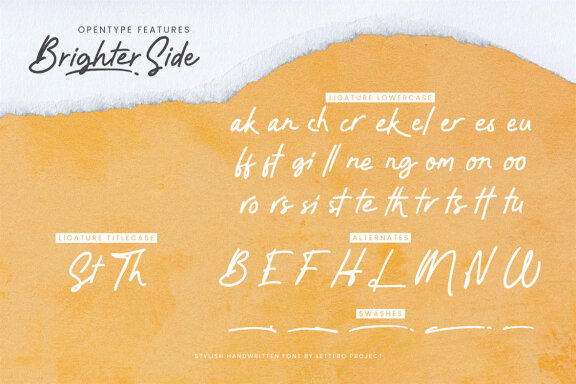 OPENTYPE FEATURES
Brighter Side
LIGATURE LOWERCASE
ak an ch cr ek el er es eu
ff ft gi ll ne ng om on oo
ro rs si st te th tr ts tt tu
LIGATURE TITLECASE
St Th
ALTERNATES
B E F H L M N W
SWASHES
STYLISH HANDWRITTEN FONT BY LETTERO PROJECT